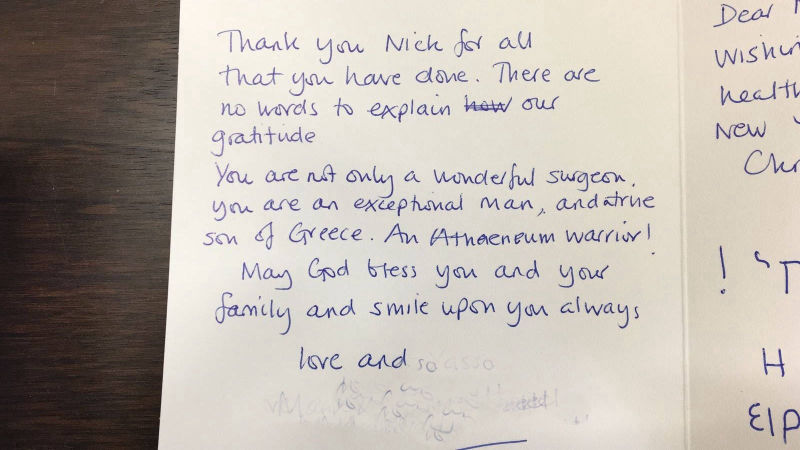 Thank you Nick for all
that you have done. There are
no words to explain how our
gratitude
You are not only a wonderful surgeon,
you are an exceptional man, and a true
son of Greece. An Athaeneum warrior!
May God bless you and your
family and smile upon you always
love and
Dear
Wishin
health
New
Chr